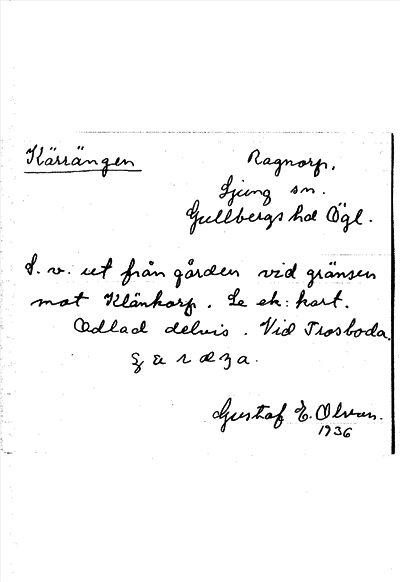 Kärrängen Ragnorp.
Ljung sn.
Gullbergs hd Ögl.
S. v. ut från gården vid gränsen
mot Klänkorp. Se ek: kart.
Odlad delvis. Vid Trosboda.
Gustaf E. Olvan.
1936